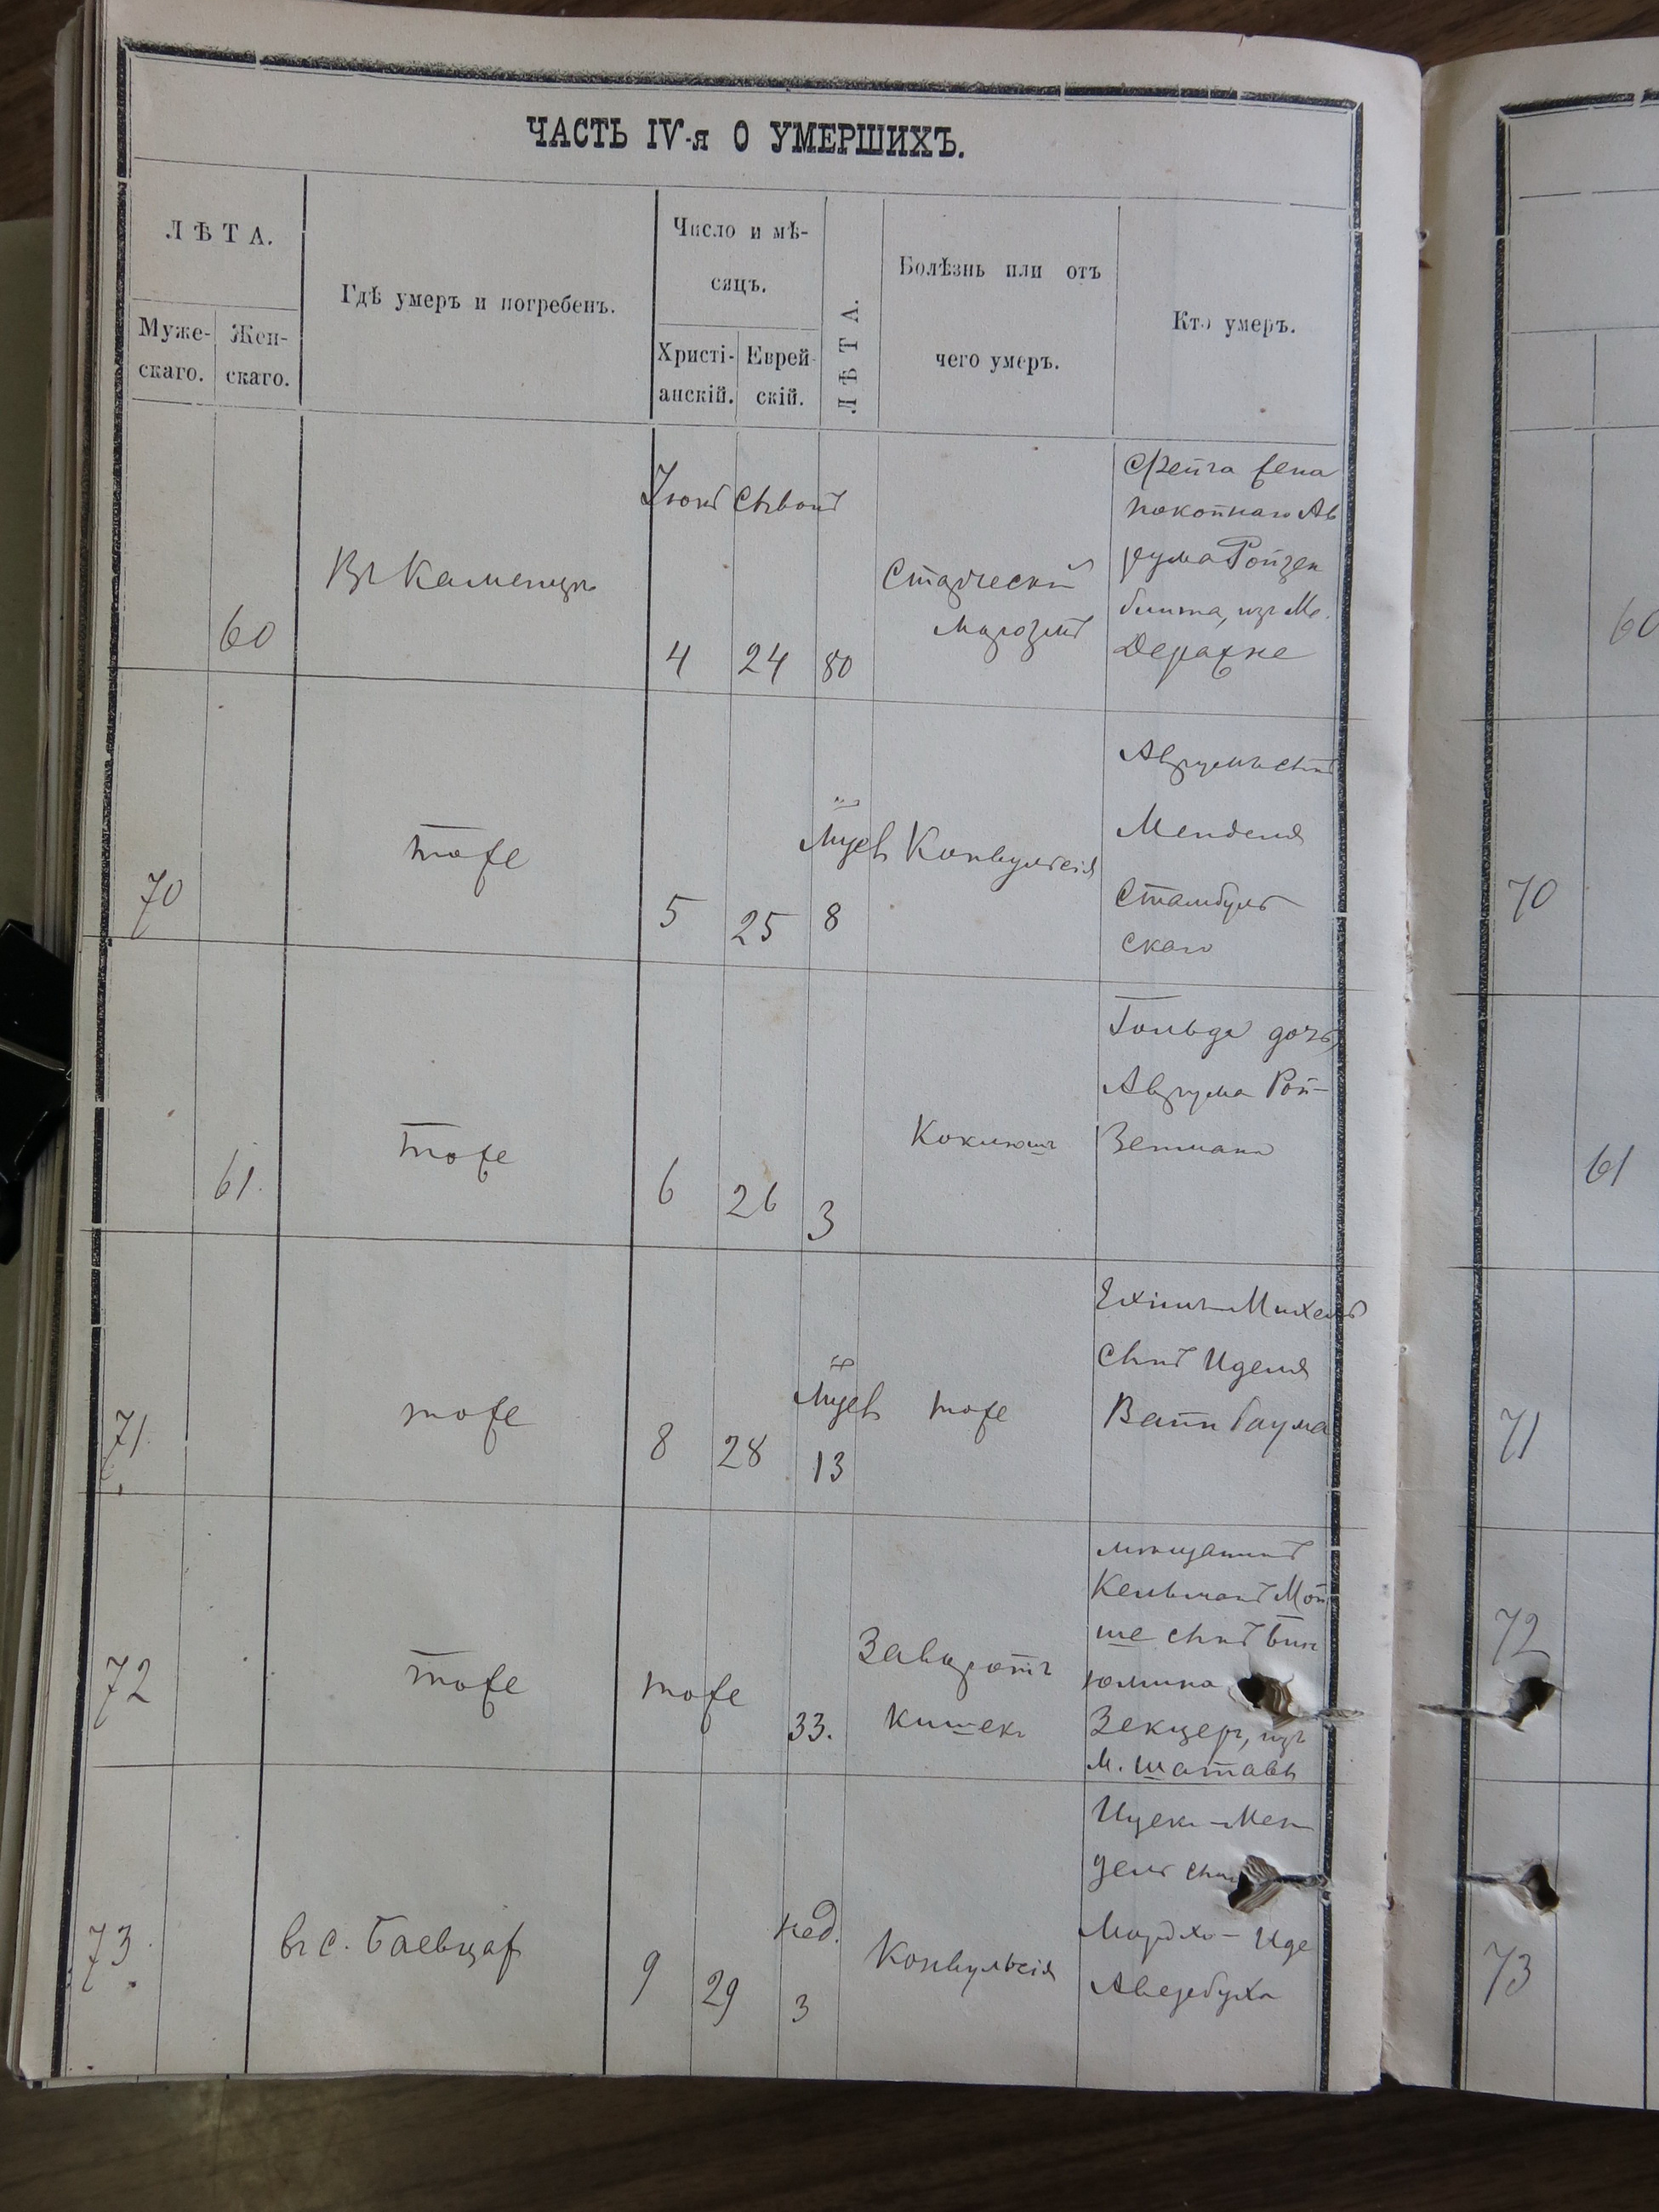 ЧАСТЬ IV-я О УМЕРШИХЪ.
ЛѢТА.
Муже-
скаго.
Жен-
скаго.
Гдѣ умеръ и погребенъ.
Число и мѣ-
сяцъ.
Христі-
анскій.
Еврей-
скій.
ЛѢТА.
Болѣзнь или отъ
чего умеръ.
Кто умеръ.
60
Въ Каменцѣ
Іюнь Сивонъ
4 24 80
Старческій
маразмъ
Фейга жена
покойнаго Ав
рума Ройзен
блита, изъ М.
Деражне
70
тоже
5 25
мѣсяцев
8
Конвульсія
Аврумъ сынъ
Менделя
Стамбуль
скаго
61.
тоже
6 26 3
Коклюшъ
Гольда дочь
Аврума Рой-
Зенмана
71.
тоже
8 28
мѣсяцев
13
тоже
Михель
сынъ Иделя
Вайнбаума
72
тоже
тоже
33.
Заворотъ
кишекъ
мѣщанинъ
Кельманъ Мой
ше сынъ Бин
юмина
Зекцеръ, изъ
М. Шатавы
73.
въ с. Баевцах
9 29
нед.
3
Конвульсія
Ицекъ-Мен
дель сынъ
Мордхо-Иде
Авербуха
60
70
61
71
72
73